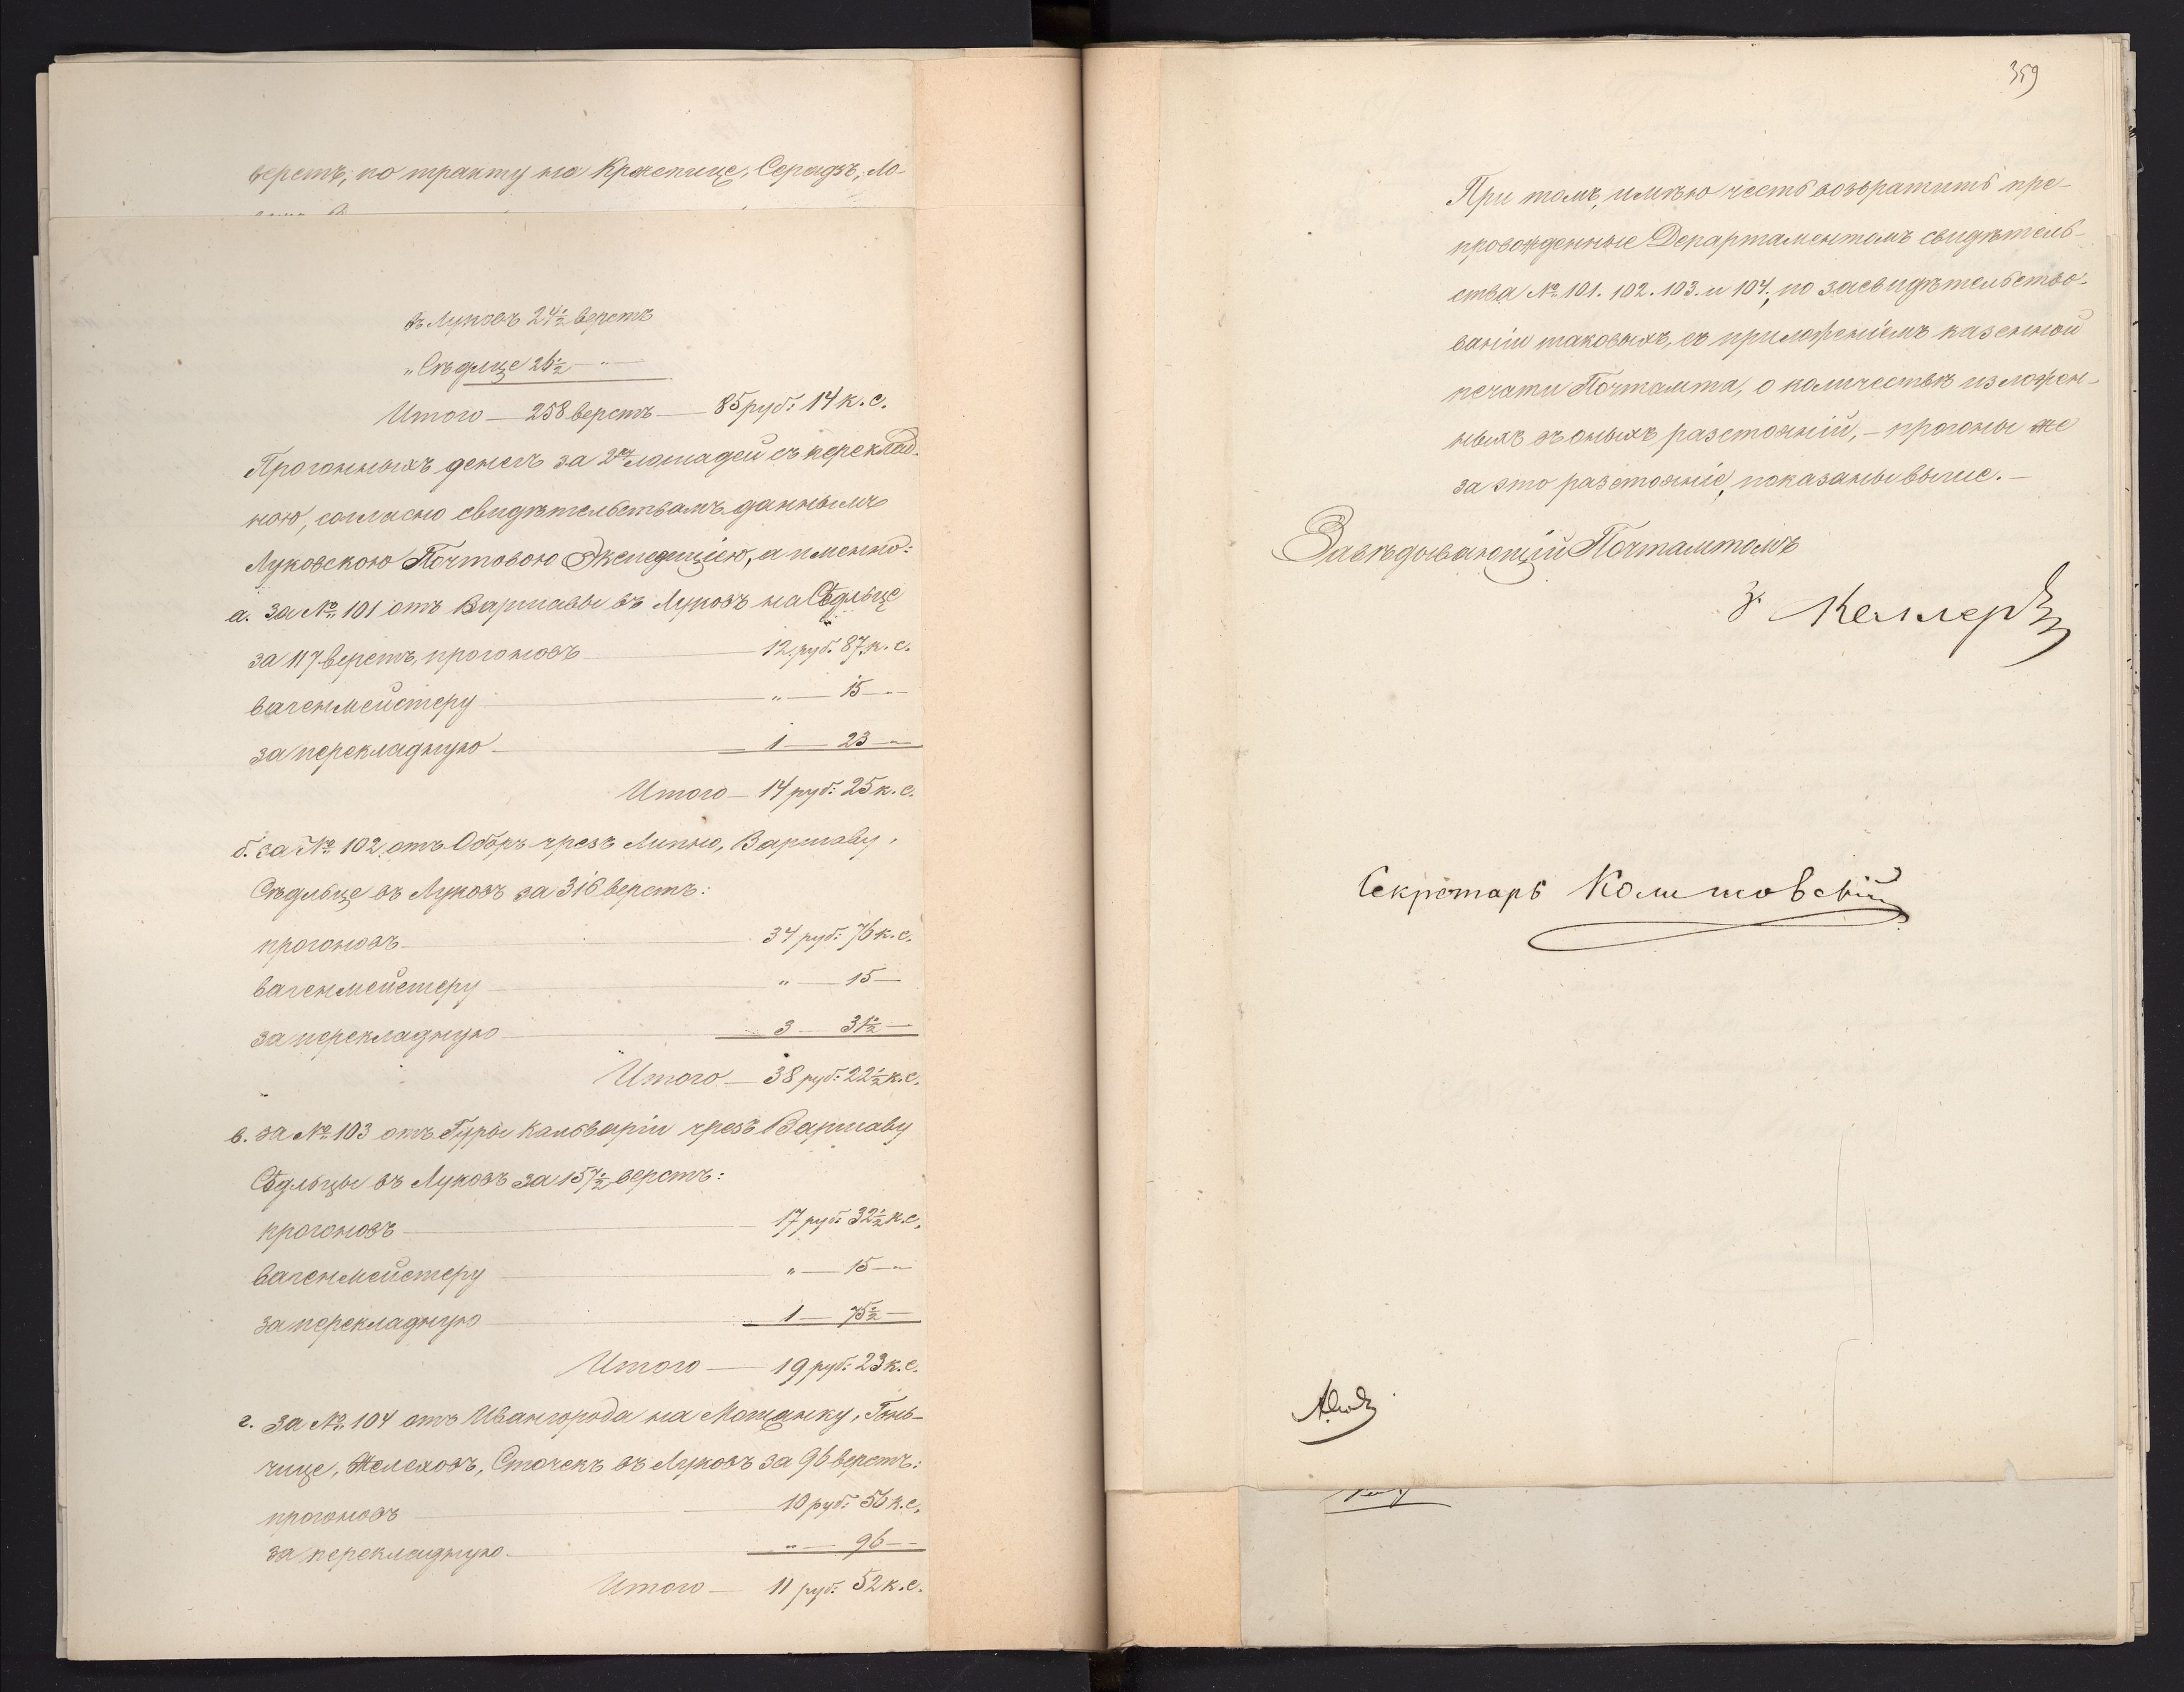 верстъ, по тракту на Крженице, Серадзъ, Ло-
въ Луковъ 24½ верстъ
„ Сѣдлце 26½ — „ —
Итого — 258 верстъ — 85 руб: 14 к. с.
Прогонныхъ денегъ за 2хъ лошадей съ переклад-
ною, согласно свидѣтельствамъ даннымъ
Луковскою Почтовою Экспедиціею, а именно:
а. за № 101 отъ Варшавы въ Луковъ на Сѣдльце
за 117 верстъ, прогоновъ — 12 руб. 87 к. с.
вагенмейстеру — „ — 15 — „
за перекладную — 1 — 23 — „
Итого — 14 руб: 25 к. с.
б. за № 102 отъ Оборъ чрезъ Липно, Варшаву,
Сѣдльце въ Луковъ за 316 верстъ:
прогоновъ — 34 руб: 76 к. с.
вагенмейстеру — „ — 15 —
за перекладную — 3 — 31½ —
Итого — 38 руб: 22½ к. с.
в. за № 103 отъ Гуры Кальваріи чрезъ Варшаву
Сѣдльцы въ Луковъ за 157½ верстъ:
прогоновъ — 17 руб: 32½ к. с.
вагенмейстеру — „ — 15 — „
за перекладную — 1 — 75½ —
Итого — 19 руб: 23 к. с.
г. за № 104 отъ Ивангорода на Мощанку, Гонь-
чице, Желеховъ, Сточекъ въ Луковъ за 96 верстъ:
прогоновъ — 10 руб: 56 к. с.
за перекладную — „ — 96 —
Итого — 11 руб: 52 к. с.
359
При томъ, имѣю честь возвратить пре-
провожденные Департаментомъ свидѣтель-
ства № 101. 102. 103. и 104., по засвидѣтельство-
ваніи таковыхъ, съ приложеніемъ казенной
печати Почтамта, о количествѣ изложен-
ныхъ въ оныхъ разстояній, – прогоны же
за это разстояніе, показаны выше. —
Завѣдывающій Почтамтомъ
Келлеръ
Секретарь